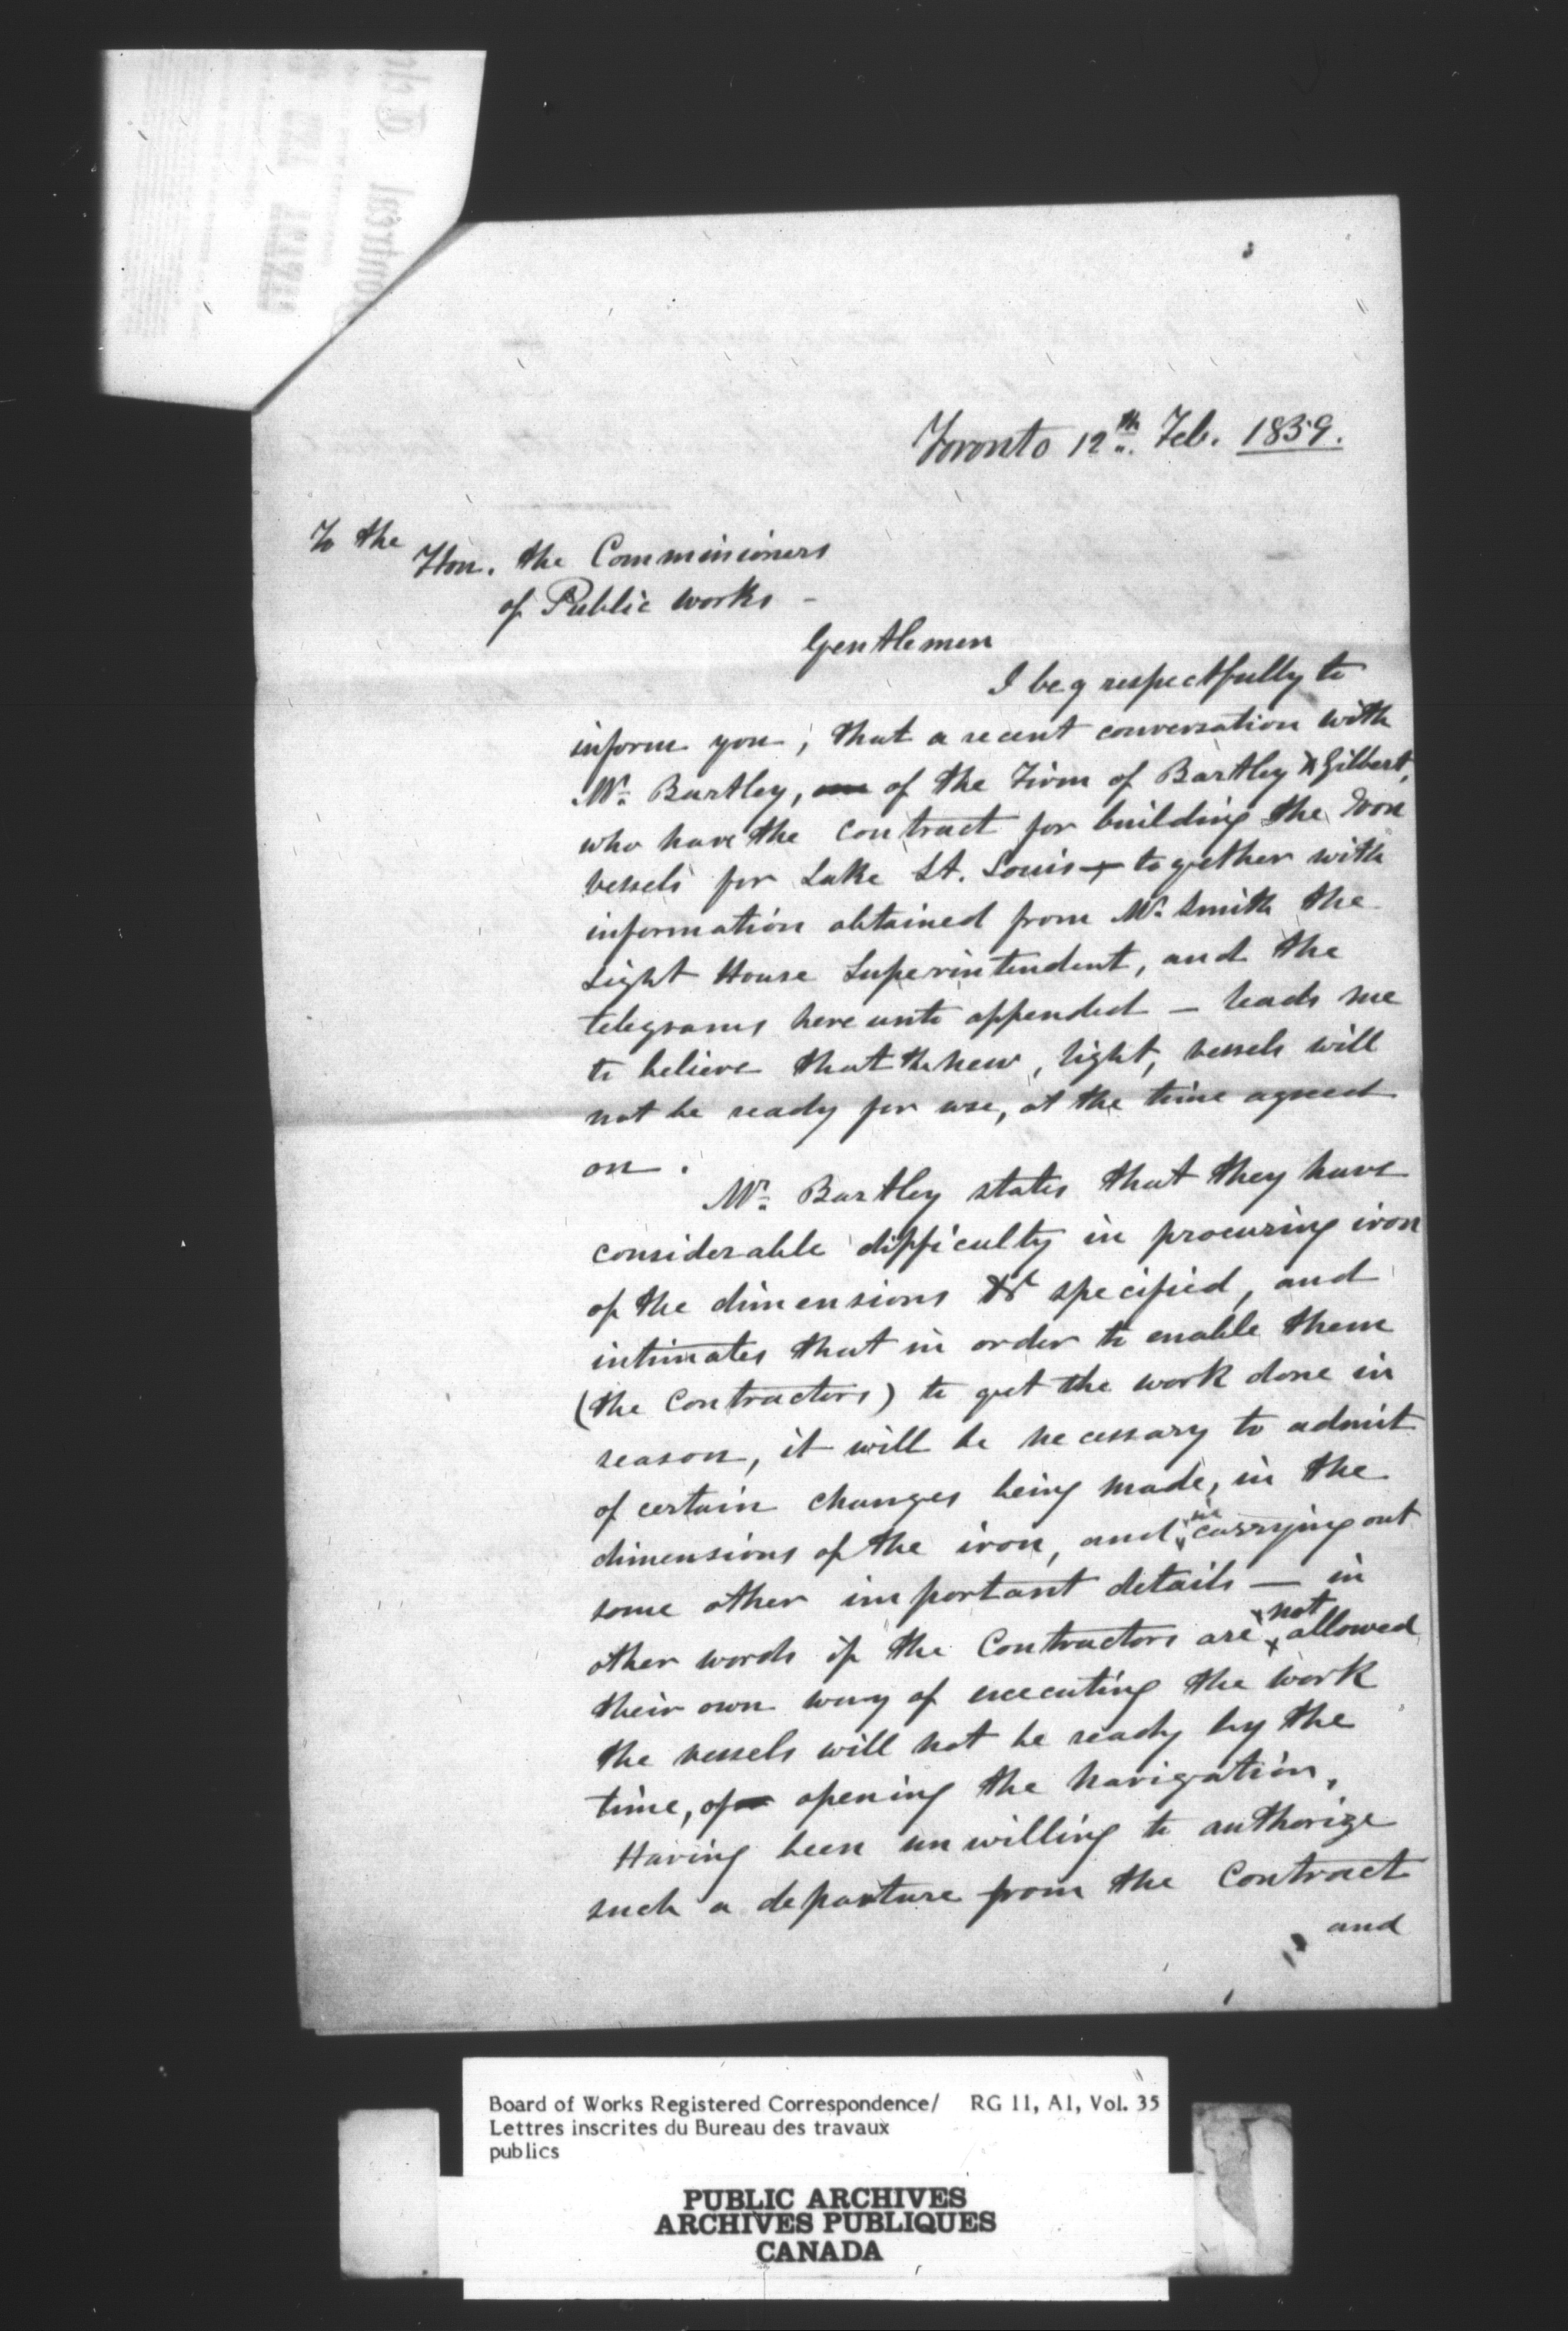 Toronto 12th. Feb. 1859.
To the
Hon. the Commissioners
of Public Works -
Gentlemen
I beg respectfully to
inform you, that a recent conversation with
Mr. Bartley, of the Firm of Bartley & Gilbert,
who have the Contract for building the Iron
vessels for Lake St. Louis - together with
information obtained from Mr. Smith the
Light House Superintendent, and the
telegrams hereunto appended - leads me
to believe that the new, light, vessels will
not be ready for use, at the time agreed
on.
Mr. Bartley states that they have
considerable difficulty in procuring iron
of the dimensions &c specified, and
intimates that in order to enable them
(the Contractors) to get the work done in
season, it will be necessary to admit
of certain changes being made, in the
dimensions of the iron, and in carrying out
some other important details - in
other words if the Contractors are not allowed
their own way of executing the work
the vessels will not be ready by the
time, of opening the navigation,
Having been unwilling to authorize
such a departure from the Contract
and
Board of Works Registered Correspondence/ RG 11, A1, Vol. 35
Lettres inscrites du Bureau des travaux
publics
PUBLIC ARCHIVES
ARCHIVES PUBLIQUES
CANADA